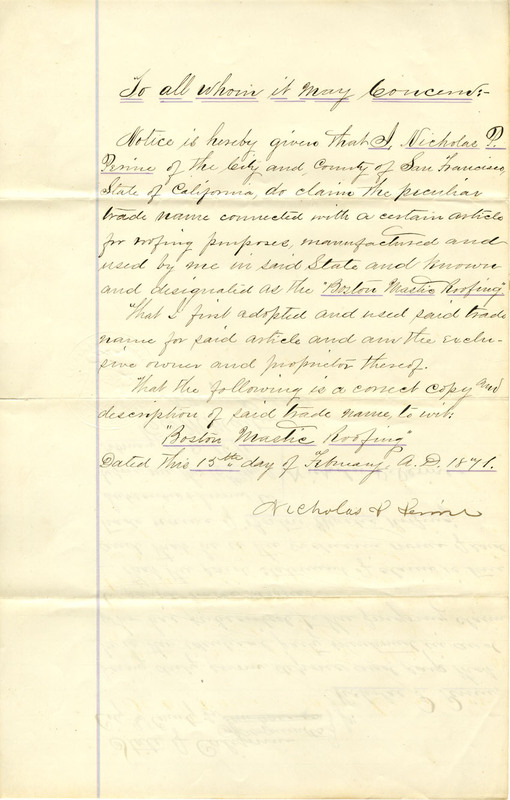 To all whom it may Concern:-
Notice is hereby given that I, Nicholas P.
Perine of the City and, County of San Francisco,
State of California, do claim the peculiar
trade name connected with a certain article
for roofing purposes, manufactured and
used by me in said State and known
and designated as the "Boston Mastic Roofing"
That I first adopted and used said trade
name for said article and am the exclu-
sive owner and proprietor thereof.
That the following is a correct copy and
description of said trade name, to wit:
"Boston Mastic Roofing"
Dated this 15th day of February A.D. 1871.
Nicholas P Perine